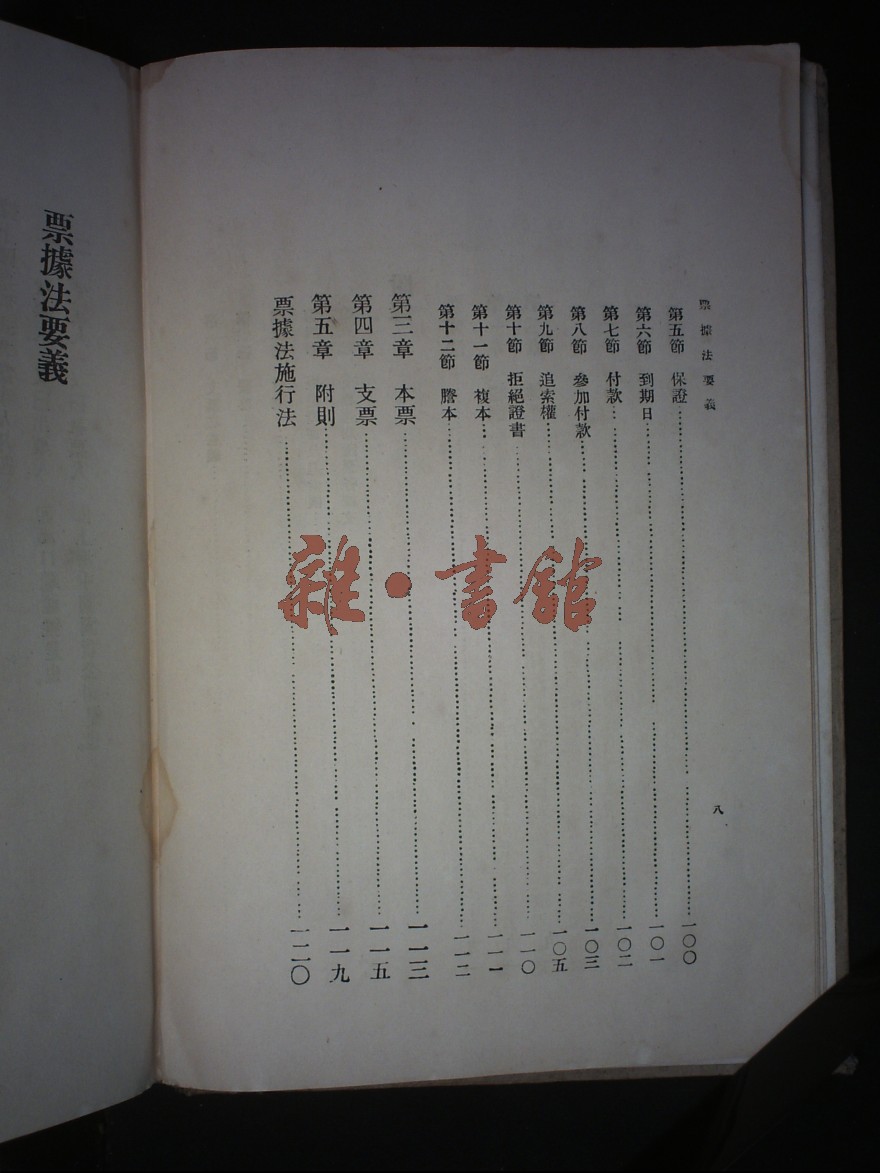 票據法要義
第五節 保證……一〇〇
第六節 到期日……一〇一
第七節 付款……一〇二
第八節 參加付款……一〇三
第九節 追索權……一〇五
第十節 拒絕證書……一一〇
第十一節 複本……一一一
第十二節 謄本……一一二
第三章 本票……一一三
第四章 支票……一一五
第五章 附則……一一九
票據法施行法……一二〇
八
票據法要義
雜·書館